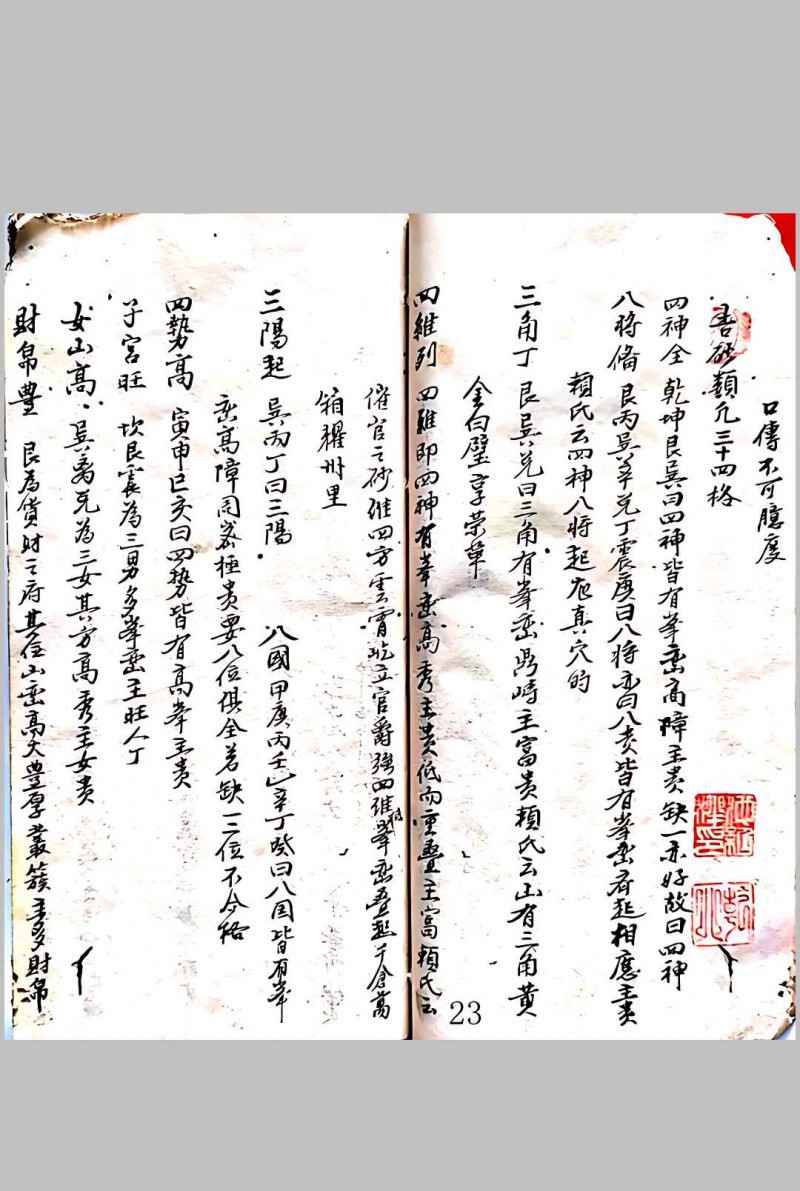 口傳不可臆度
善砂類凡三十四格
四神全 乾坤艮巽曰四神皆有峯巒高障主貴缺一亦好故曰四神
八將備 艮丙巽辛兌丁震庚曰八將亦曰八贵皆有峯巒聳起相應主贵
賴氏云四神八將起應真穴的
三角丁 艮巽兌曰三角有峯巒鼎峙主富贵賴氏云山有三角黄
金白璧享荣華
四維列 四維即四神有峯巒高秀主贵低而重疊主富賴氏云
催官之砂維四方雲霄屹立官爵強四維低峯巒叠起千倉萬
箱耀州里
三陽起 巽丙丁曰三陽 八國甲庚丙壬乙辛丁癸曰八國皆有峯
巒高障周密極贵要八位俱全若缺一二位不合格
四勢高 寅申巳亥曰四勢皆有高峯主贵
子宮旺 坎艮震為三男多峯巒主旺人丁
女山高 巽离兑為三女其方高秀主女贵
財帛豐 艮為貨財之府其位山巒高大豐厚叢簇主多財帛
23